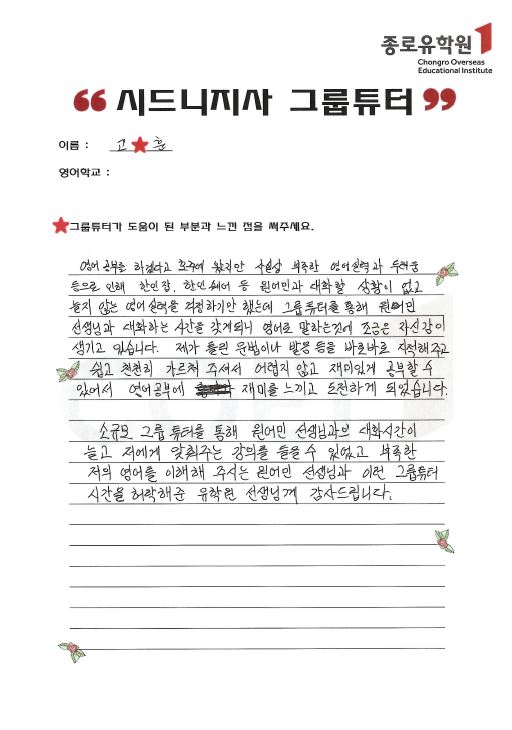 종로유학원
Chongro Overseas
Educational Institute
시드니지사 그룹튜터
이름 : 고 훈
영어학교 :
그룹튜터가 도움이 된 부분과 느낀 점을 써주세요.
영어 공부를 하겠다고 호주에 왔지만 사실상 부족한 영어실력과 두려움
등으로 인해 한인잡, 한인쉐어 등 원어민과 대화할 상황이 없고
늘지 않는 영어실력을 걱정하기만 했는데 그룹튜터를 통해 원어민
선생님과 대화하는 시간을 갖게되니 영어로 말하는것에 조금은 자신감이
생기고 있습니다. 제가 틀린 문법이나 발음 등을 바로바로 지적해 주고
쉽고 천천히 가르쳐 주셔서 어렵지 않고 재미있게 공부할 수
있어서 영어공부에 재미를 느끼고 도전하게 되었습니다.
소규모 그룹 튜터를 통해 원어민 선생님과의 대화시간이
늘고 저에게 맞춰주는 강의를 들을 수 있었고 부족한
저의 영어를 이해해 주시는 원어민 선생님과 이런 그룹튜터
시간을 허락해준 유학원 선생님께 감사드립니다.